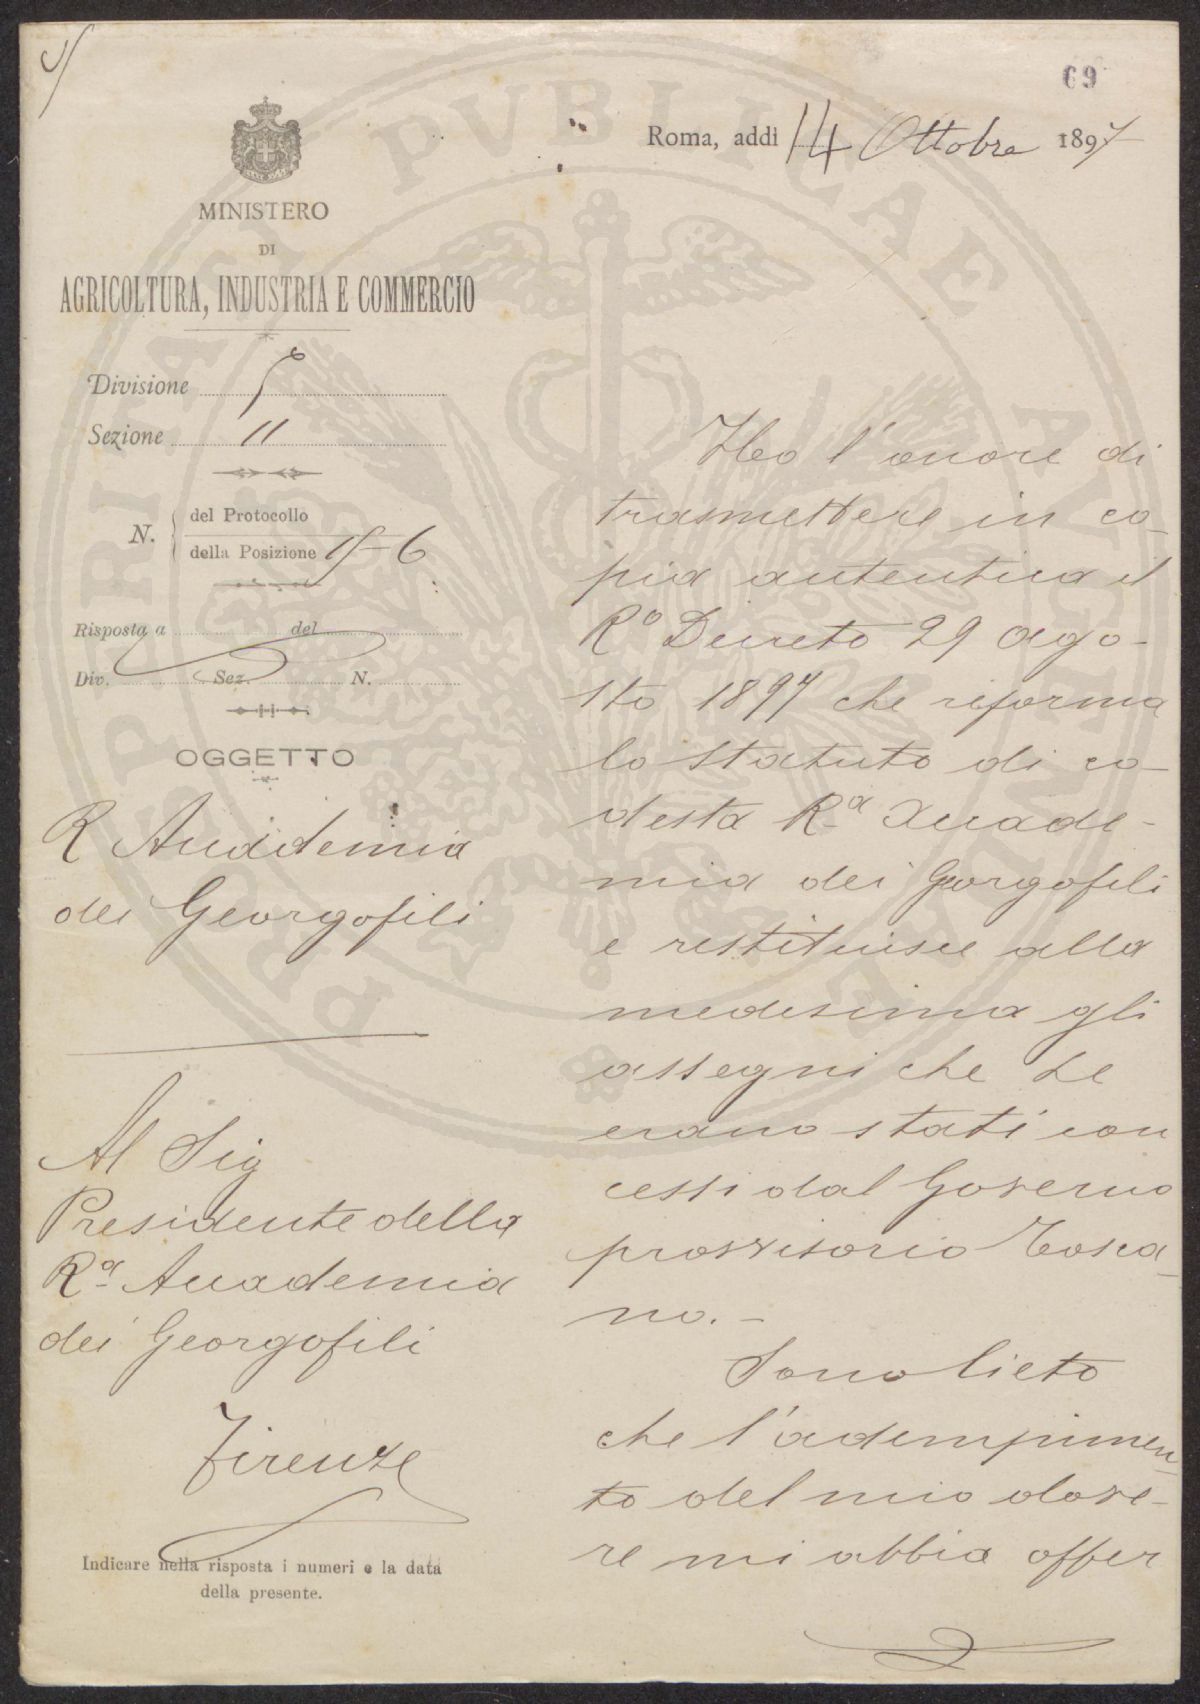 69
Roma, addì 14 Ottobre 1897
MINISTERO
DI
AGRICOLTURA, INDUSTRIA E COMMERCIO
Divisione
Sezione 11
N. del Protocollo
della Posizione 15-6
Risposta a del
Div. Sez. N.
OGGETTO
R Accademia
dei Georgofili
Al Sig
Presidente della
Rª Accademia
dei Georgofili
Firenze
Indicare nella risposta i numeri e la data
della presente.
Ho l'onore di
trasmettere in co-
pia autentica il
R° Decreto 29 ago-
sto 1897 che riforma
lo statuto di co-
desta Rª Accade-
mia dei Georgofili
e restituisce alla
medesima gli
assegni che Le
erano stati con
cessi dal Governo
provvisorio Tosca-
no.-
Sono lieto
che l'adempimen-
to del mio dove-
re mi abbia offer
PROSPERITASI PUBLICAE AUGENDAE